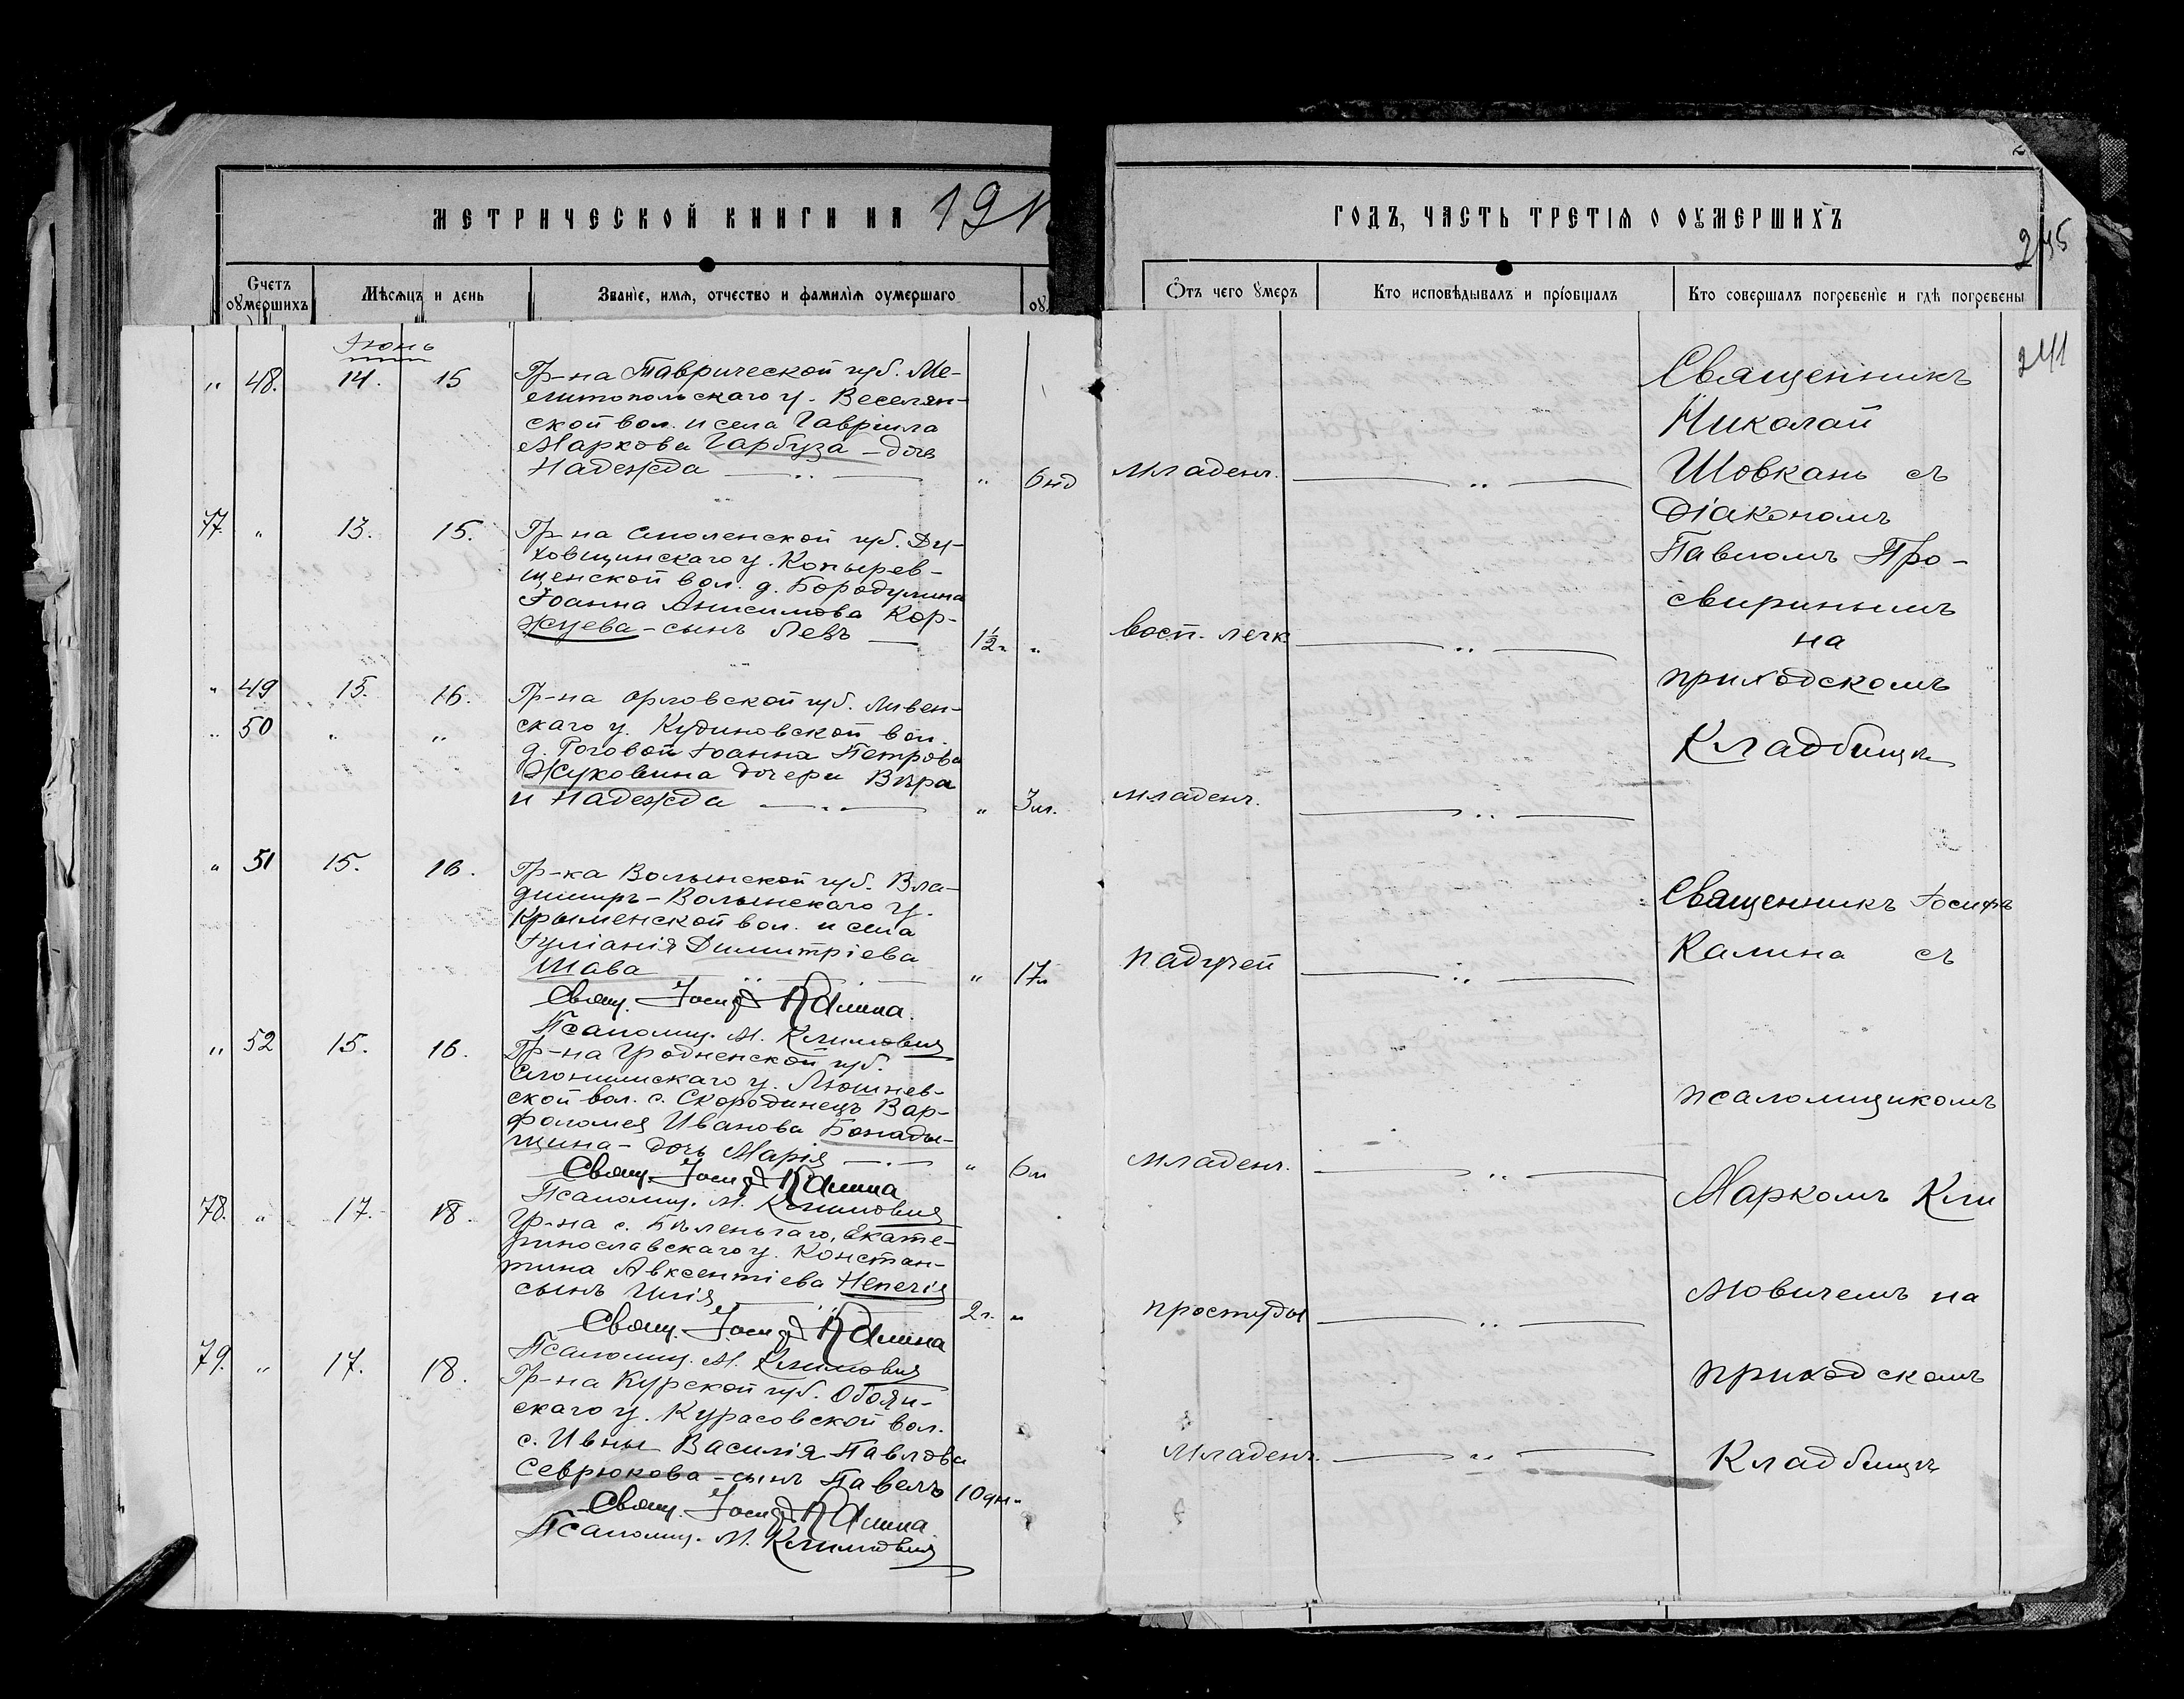 МЕТРИЧЕСКОЙ КНИГИ НА 191
ГОДЪ, ЧАСТЬ ТРЕТІЯ О ОУМЕРШИХЪ
245
Счетъ оумершихъ
Мѣсяцъ и день
Званіе, имя, отчество и фамилія оумершаго
оу
Ѿтъ чего умеръ
Кто исповѣдывалъ и пріобщалъ
Кто совершалъ погребеніе и гдѣ погребены
241
Іюнь
" 48. 14. 15 Гр-на Таврической губ. Ме-
литопольскаго у. Веселян-
ской вол. и села Гавріила
Маркова Гарбуза - дочь
Надежда " 6 нд младенч. "
77. " 13. 15. Гр-на Смоленской губ. Ду-
ховщинскаго у. Копырев-
щенской вол. д. Бородулина
Іоанна Анисимова Кор-
жуева - сынъ Левъ 1½ г. " восп. легк. "
" 49 15. 16. Гр-на Орловской губ. Ливен-
" 50 " " скаго у. Кудиновской вол.
д. Роговой Іоанна Петрова
Жуковина дочери Вѣра
и Надежда " 3 м. младенч. "
Священникъ
Николай
Шовкань съ
Діакономъ
Павломъ Про-
свиринымъ
на
приходскомъ
Кладбищѣ
" 51 15. 16. Гр-ка Волынской губ. Вла-
димиръ-Волынскаго у.
Крыменской вол. и села
Іуліанія Димитріева
Шава " 17 м падучей "
Свящ. Іосифъ Калина.
Псаломщ. М. Климовичъ
" 52 15. 16. Гр-на Гродненской губ.
Слонимскаго у. Люшнев-
ской вол. с. Скородинецъ Вар-
фоломея Иванова Бонады-
щина - дочь Марія " 6 м младенч. "
Свящ. Іосифъ Калина
Псаломщ. М. Климовичъ
78. " 17. 18. Гр-на с. Бѣленькаго, Екате-
ринославскаго у. Констан-
тина Авксентіева Непечія
сынъ Илія 2 г. " простуды "
Свящ. Іосифъ Калина
Псаломщ. М. Климовичъ
79. " 17. 18. Гр-на Курской губ. Обоян-
скаго у. Курасовской вол.
с. Ивны Василія Павлова
Севрюкова - сынъ Павелъ 10 дн. " младенч. "
Свящ. Іосифъ Калина.
Псаломщ. М. Климовичъ
Священникъ Іосифъ
Калина съ
псаломщикомъ
Маркомъ Кли
мовичемъ на
приходскомъ
Кладбищѣ